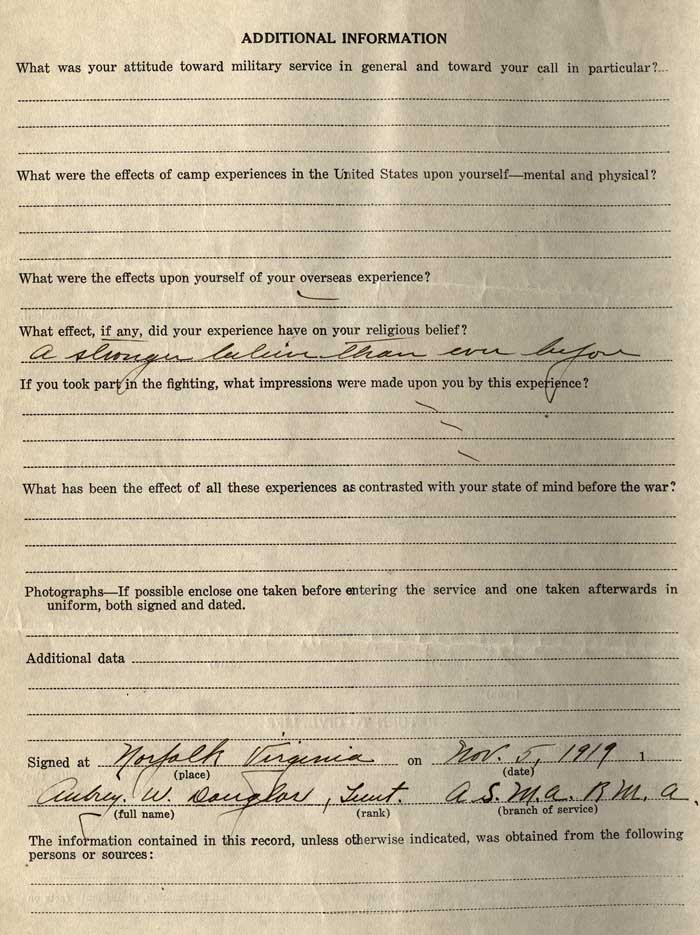 ADDITIONAL INFORMATION
What was your attitude toward military service in general and toward your call in particular?
What were the effects of camp experiences in the United States upon yourself—mental and physical?
What were the effects upon yourself of your overseas experience?
What effect, if any, did your experience have on your religious belief?
A stronger than ever before
If you took part in the fighting, what impressions were made upon you by this experience?
What has been the effect of all these experiences as contrasted with your state of mind before the war?
Photographs—If possible enclose one taken before entering the service and one taken afterwards in
uniform, both signed and dated.
Additional data
Signed at Norfolk Virginia on Nov. 5, 1919 1
(place) (date)
Aubrey. W. Douglas, Lieut. A S. M. A. R. M. A.
(full name) (rank) (branch of service)
The information contained in this record, unless otherwise indicated, was obtained from the following
persons or sources: